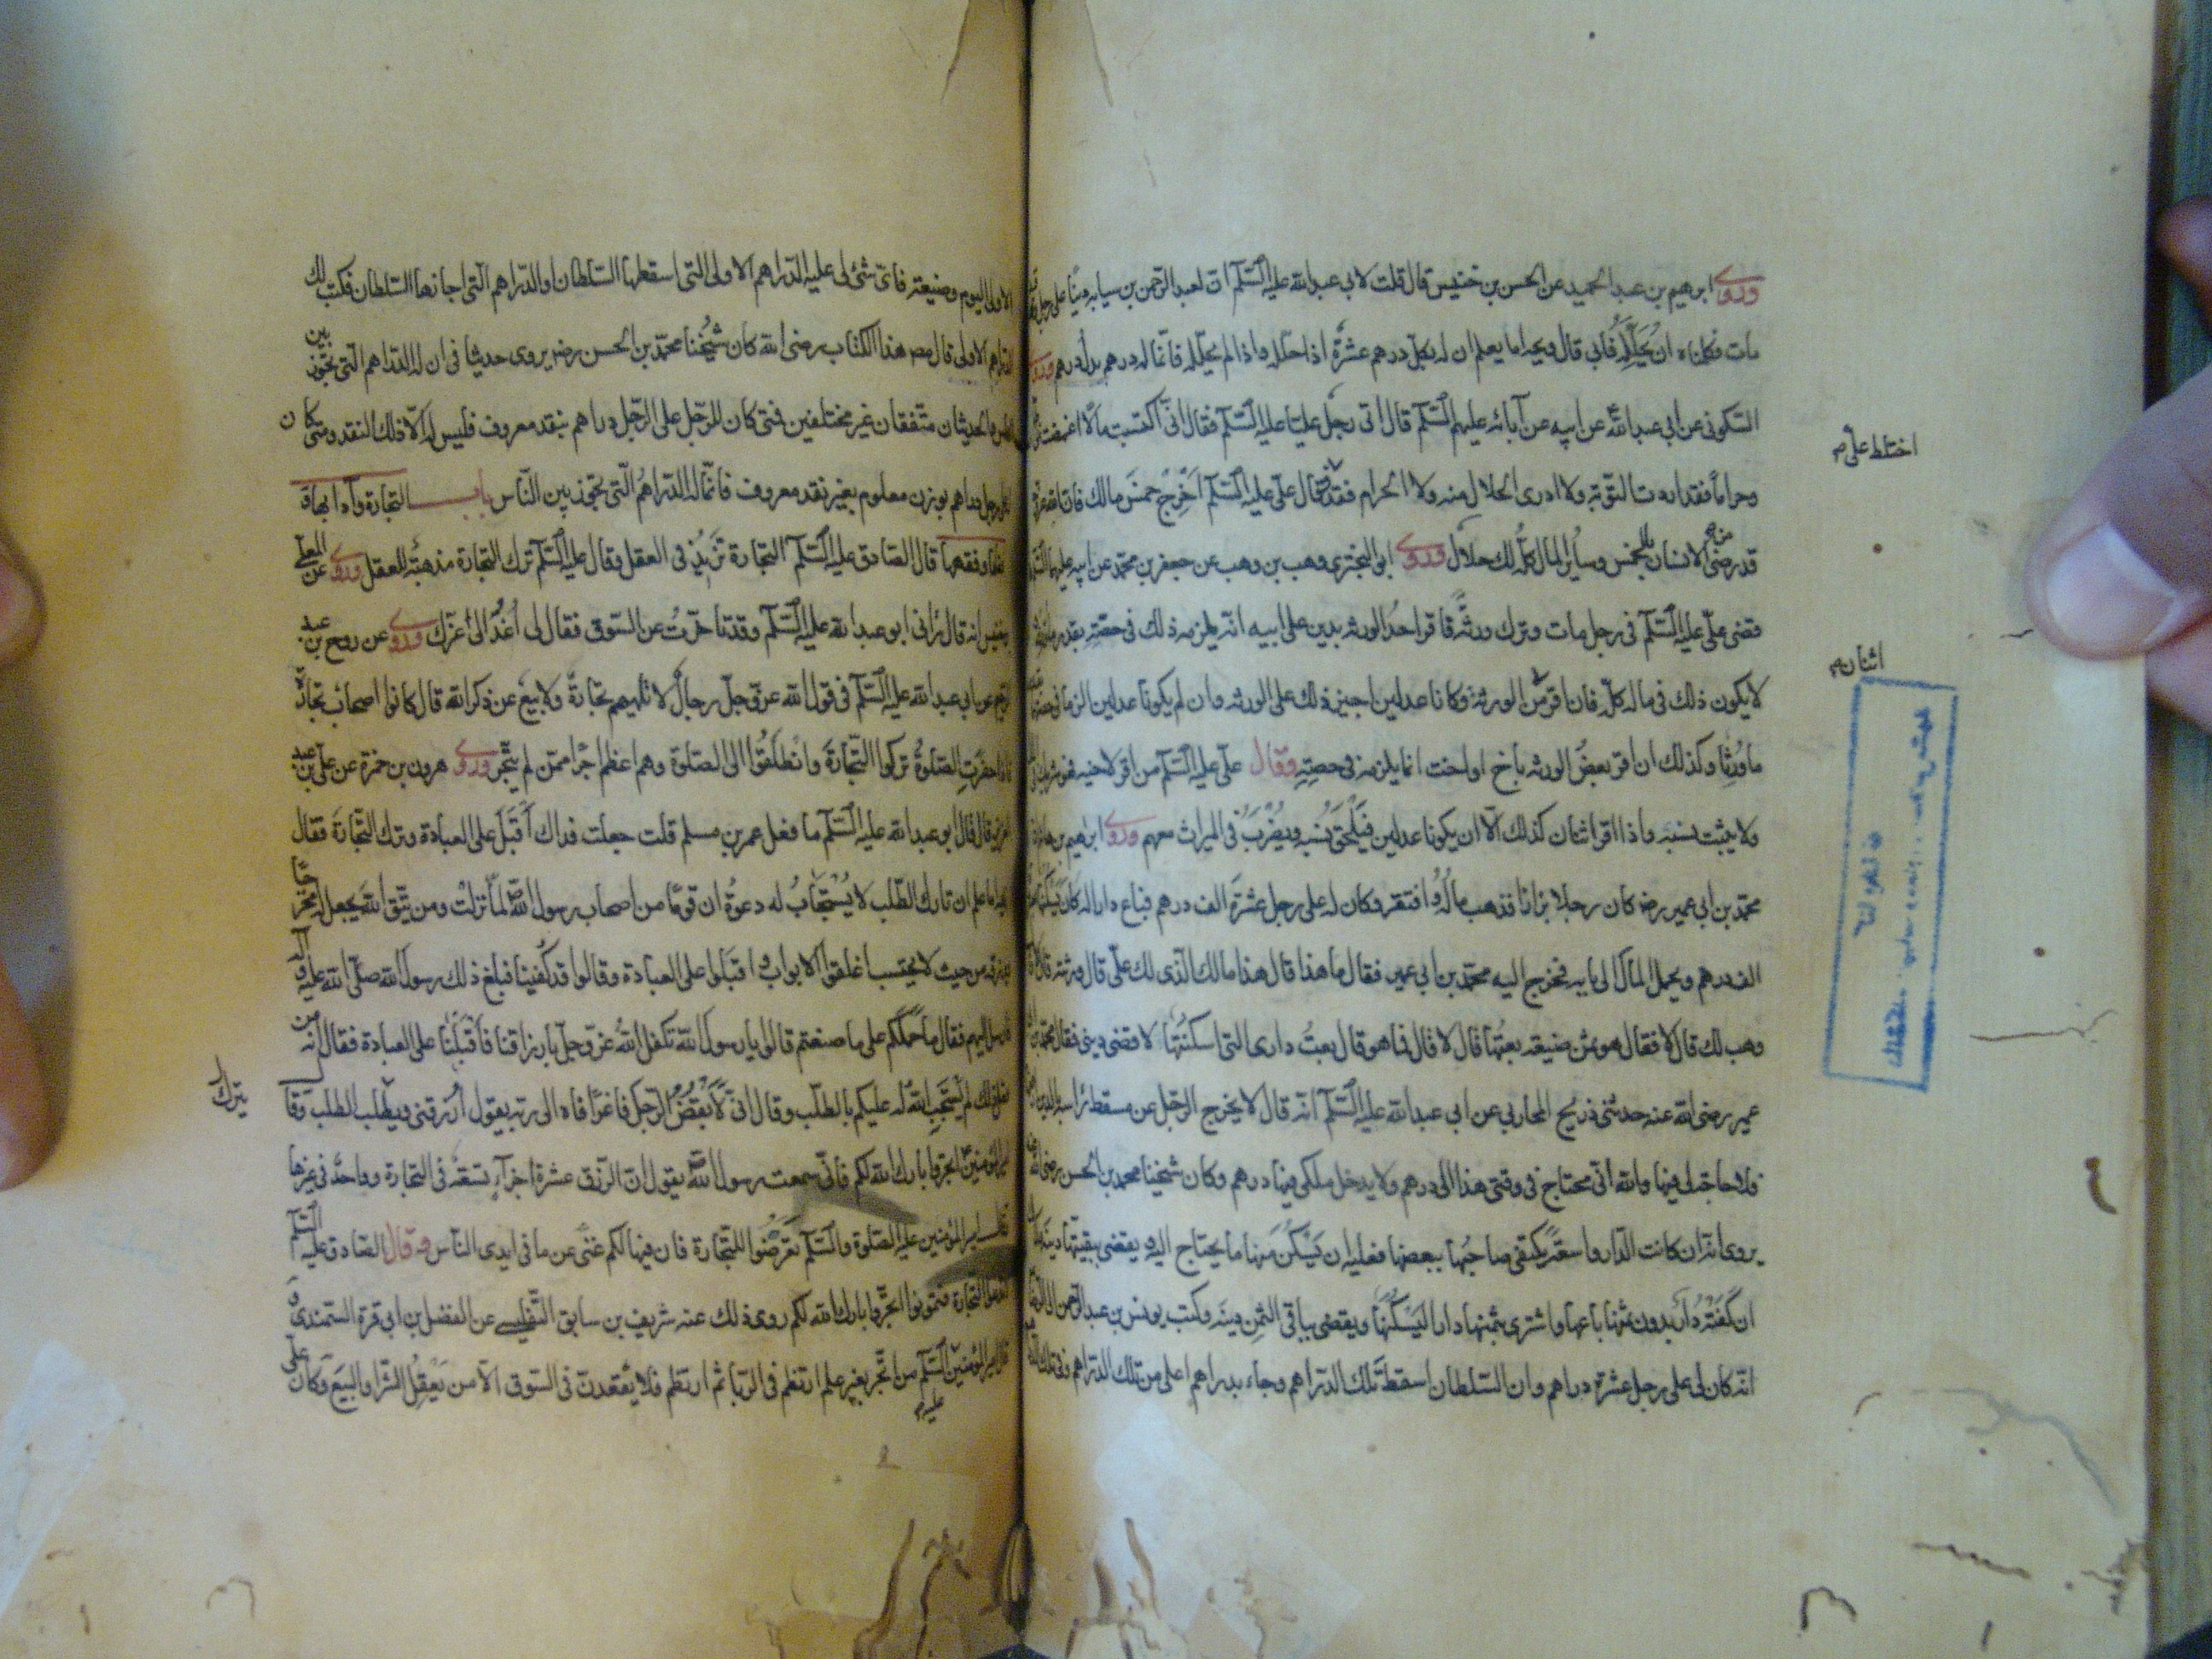 وروى ابرهيم بن عبد الحميد عن الحسن بن خنيس قال قلت لابي عبد الله عليه السلام ان لعبد الرحمن بن سيابه دينا على رجل
مات وكلمناه ان يحلله فابى قال ويحه اما يعلم ان له بكل درهم عشرة اذا حلله واذا لم يحلله فانما له درهم بدل درهم وروى
السكونى عن ابى عبد الله عن ابيه عن آبائه عليهم السلم قال اتى رجل عليا عليه السلم فقال انى اكتسبت مالا اغمضت
اختلط على
وحراما فقد اردت التوبة ولا ادرى الحلال منه ولا الحرام فقد فقال على عليه السلم اخرج خمس مالك فان الله عز
قد رضى من الانسان بالخمس وسائر المال كله لك حلال وروى ابى البخترى وهب بن وهب عن جعفر بن محمد عن ابيه عليهما السلم
قضى على عليه السلم فى رجل مات وترك ورثة فاقر احد الورثه بدين على ابيه انه يلزمه ذلك فى حصته بقدر ما
اثنان
لا يكون ذلك فى ماله كله فان اقر من الورثه وكانا عدلين اجيز ذلك على الورثه وان لم يكونا عدلين الزما فى حصتهما
ما ورثا وكذلك ان اقر بعض الورثه باخ او اخت انما يلزمه فى حصته وقال على عليه السلم من اقر لاخيه فهو شريك فى
ولا يثبت نسبه واذا اقر اثنان كذلك الا ان يكونا عدلين فيلحق نسبه ويضرب فى الميراث معهم وروى ابرهيم بن هاشم
محمد بن ابى عمير رضه كان رجلا بزازا فذهب ماله وافتقر وكان له على رجل عشرة الف درهم فباع دارا له كان يسكنها
الف درهم وحمل المال الى بابه فخرج اليه محمد بن ابى عمير فقال ما هذا قال هذا مالك الذى لك على قال ورثته قال لا
وهب لك قال لا فقال هو من ثمن ضيعه بعتها قال لا قال فما هو قال بعت دارى التى اسكنها لاقضى دينى فقال محمد بن
عمير رضى الله عنه حدثنى ذريح المحاربى عن ابى عبد الله عليه السلم انه قال لا يخرج الرجل عن مسقط راسه بالدين
فلا حاجة لى فيها والله انى محتاج فى وقتى هذا الى درهم ولا يدخل ملكى منها درهم وكان شيخنا محمد بن الحسن رضى الله
يروى انه ان كانت الدار واسعة يكتفى صاحبها ببعضها فعليه ان يسكن منها ما يحتاج اليه ويقضى ببقيتها دينه
ان كفته دار بدون ثمنها باعها واشترى بثمنها دارا ليسكنها ويقضى بباقى الثمن دينه وكتب يونس بن عبد الرحمن الى الرضا
انه كان لى على رجل عشرة دراهم وان السلطان اسقط تلك الدراهم وجاء بدراهم اعلى من تلك الدراهم وفى تلك
الاولى اليوم وضيعته فاى شئ لى عليه الدراهم الاولى التى اسقطها السلطان او الدراهم التى اجازها السلطان فكتب لك
الدراهم الاولى قال مصـ هذا الكتاب رضى الله كان شيخنا محمد بن الحسن رضه يروى حديثا فى ان له الدراهم التى تجوز بين
الناس والحديثان متفقان غير مختلفين فمتى كان للرجل على الرجل دراهم بنقد معروف فليس له الا ذلك النقد ومتى كان
على رجل دراهم بوزن معلوم بغير نقد معروف فانما له الدراهم التى تجوز بين الناس باب التجارة وآدابها
وفضلها وفقهها قال الصادق عليه السلم التجارة تزيد فى العقل وقال عليه السلم ترك التجارة مذهبة للعقل وروى عن المعلى
بن خنيس انه قال رآنى ابو عبد الله عليه السلم وقد تاخرت عن السوق فقال لى اغد الى عزك وروى عن روح بن عبد
الرحيم عن ابى عبد الله عليه السلم فى قول الله عز وجل رجال لا تلهيهم تجارة ولا بيع عن ذكر الله قال كانوا اصحاب تجارة
فاذا حضرت الصلوة تركوا التجارة وانطلقوا الى الصلوة وهم اعظم اجرا ممن لم يتجر وروى هرون بن حمزة عن على بن عبد
العزيز قال قال ابو عبد الله عليه السلم ما فعل عمر بن مسلم قلت جعلت فداك اقبل على العبادة وترك التجارة فقال
ويحه اما علم ان تارك الطلب لا يستجاب له دعوة ان قوما من اصحاب رسول الله لما نزلت ومن يتق الله يجعل له مخرجا
ويرزقه من حيث لا يحتسب اغلقوا الابواب واقبلوا على العبادة وقالوا قد كفينا فبلغ ذلك رسول الله صلى الله عليه وآله
فارسل اليهم فقال ما حملكم على ما صنعتم قالوا يا رسول الله تكفل الله عز وجل بارزاقنا فاقبلنا على العبادة فقال انه من
فعل ذلك لم يستجب الله له عليكم بالطلب وقال انى لابغض الرجل فاغرا فاه الى ربه يقول ارزقنى ويطلب الطلب وقال
يترك
امير المؤمنين اتجروا بارك الله لكم فانى سمعت رسول الله يقول ان الرزق عشرة اجزاء تسعة فى التجارة وواحد فى غيرها
وقال امير المؤمنين عليه الصلوة والسلم تعرضوا للتجارة فان فيها لكم غنى عن ما فى ايدى الناس وقال الصادق عليه السلم
التجارة فتهونوا اتجروا بارك الله لكم روى ذلك عنه شريف بن سابق التفليسى عن الفضل بن ابى قرة السمندى و
قال امير المؤمنين عليه السلم من اتجر بغير علم ارتطم فى الربا ثم ارتطم فلا يقعدن فى السوق الا من يعقل الشرا والبيع وكان على